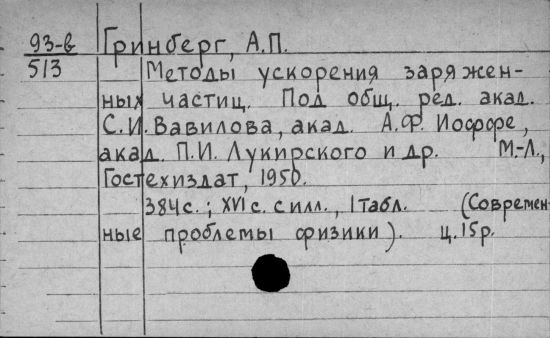 93-в Гринберг, А.П.
513 Методы ускорения заряжен-
ных частиц. Под общ. ред. акад.
С.И. Вавилова, акад. А.Ф. Иоффе,
акад. П.И. Лукирского и др. М.-Л.,
Гостехиздат, 1950.
384с.; XVI с. с илл., 1 табл. (Современ-
ные проблемы физики). ц.15р.